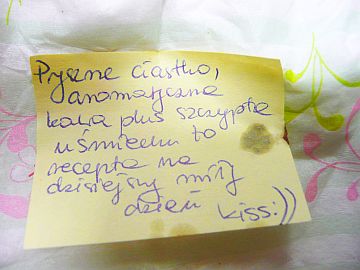 Pyszne ciastko,
aromatyczna
kawa plus szczypta
uśmiechu to
recepta na
dzisiejszy miły
dzień kiss:))